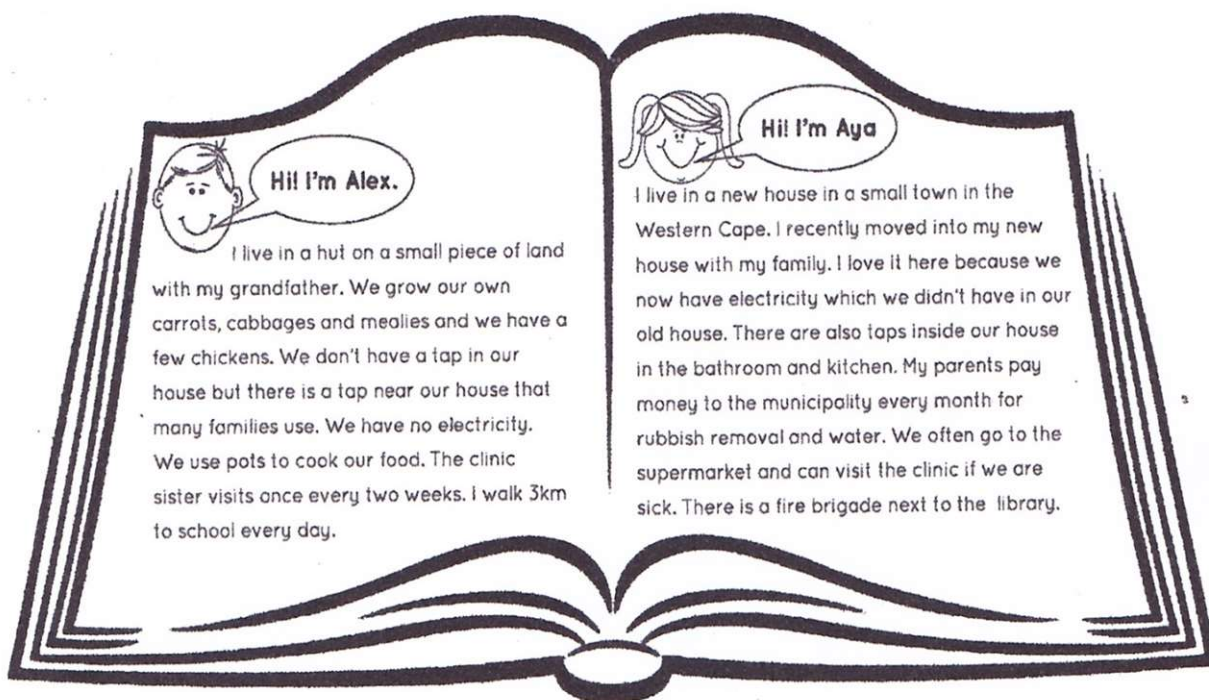 Hi! I'm Alex.
I live in a hut on a small piece of land
with my grandfather. We grow our own
carrots, cabbages and mealies and we have a
few chickens. We don't have a tap in our
house but there is a tap near our house that
many families use. We have no electricity.
We use pots to cook our food. The clinic
sister visits once every two weeks. I walk 3km
to school every day.
Hi! I'm Aya
I live in a new house in a small town in the
Western Cape. I recently moved into my new
house with my family. I love it here because we
now have electricity which we didn't have in our
old house. There are also taps inside our house
in the bathroom and kitchen. My parents pay
money to the municipality every month for
rubbish removal and water. We often go to the
supermarket and can visit the clinic if we are
sick. There is a fire brigade next to the library.